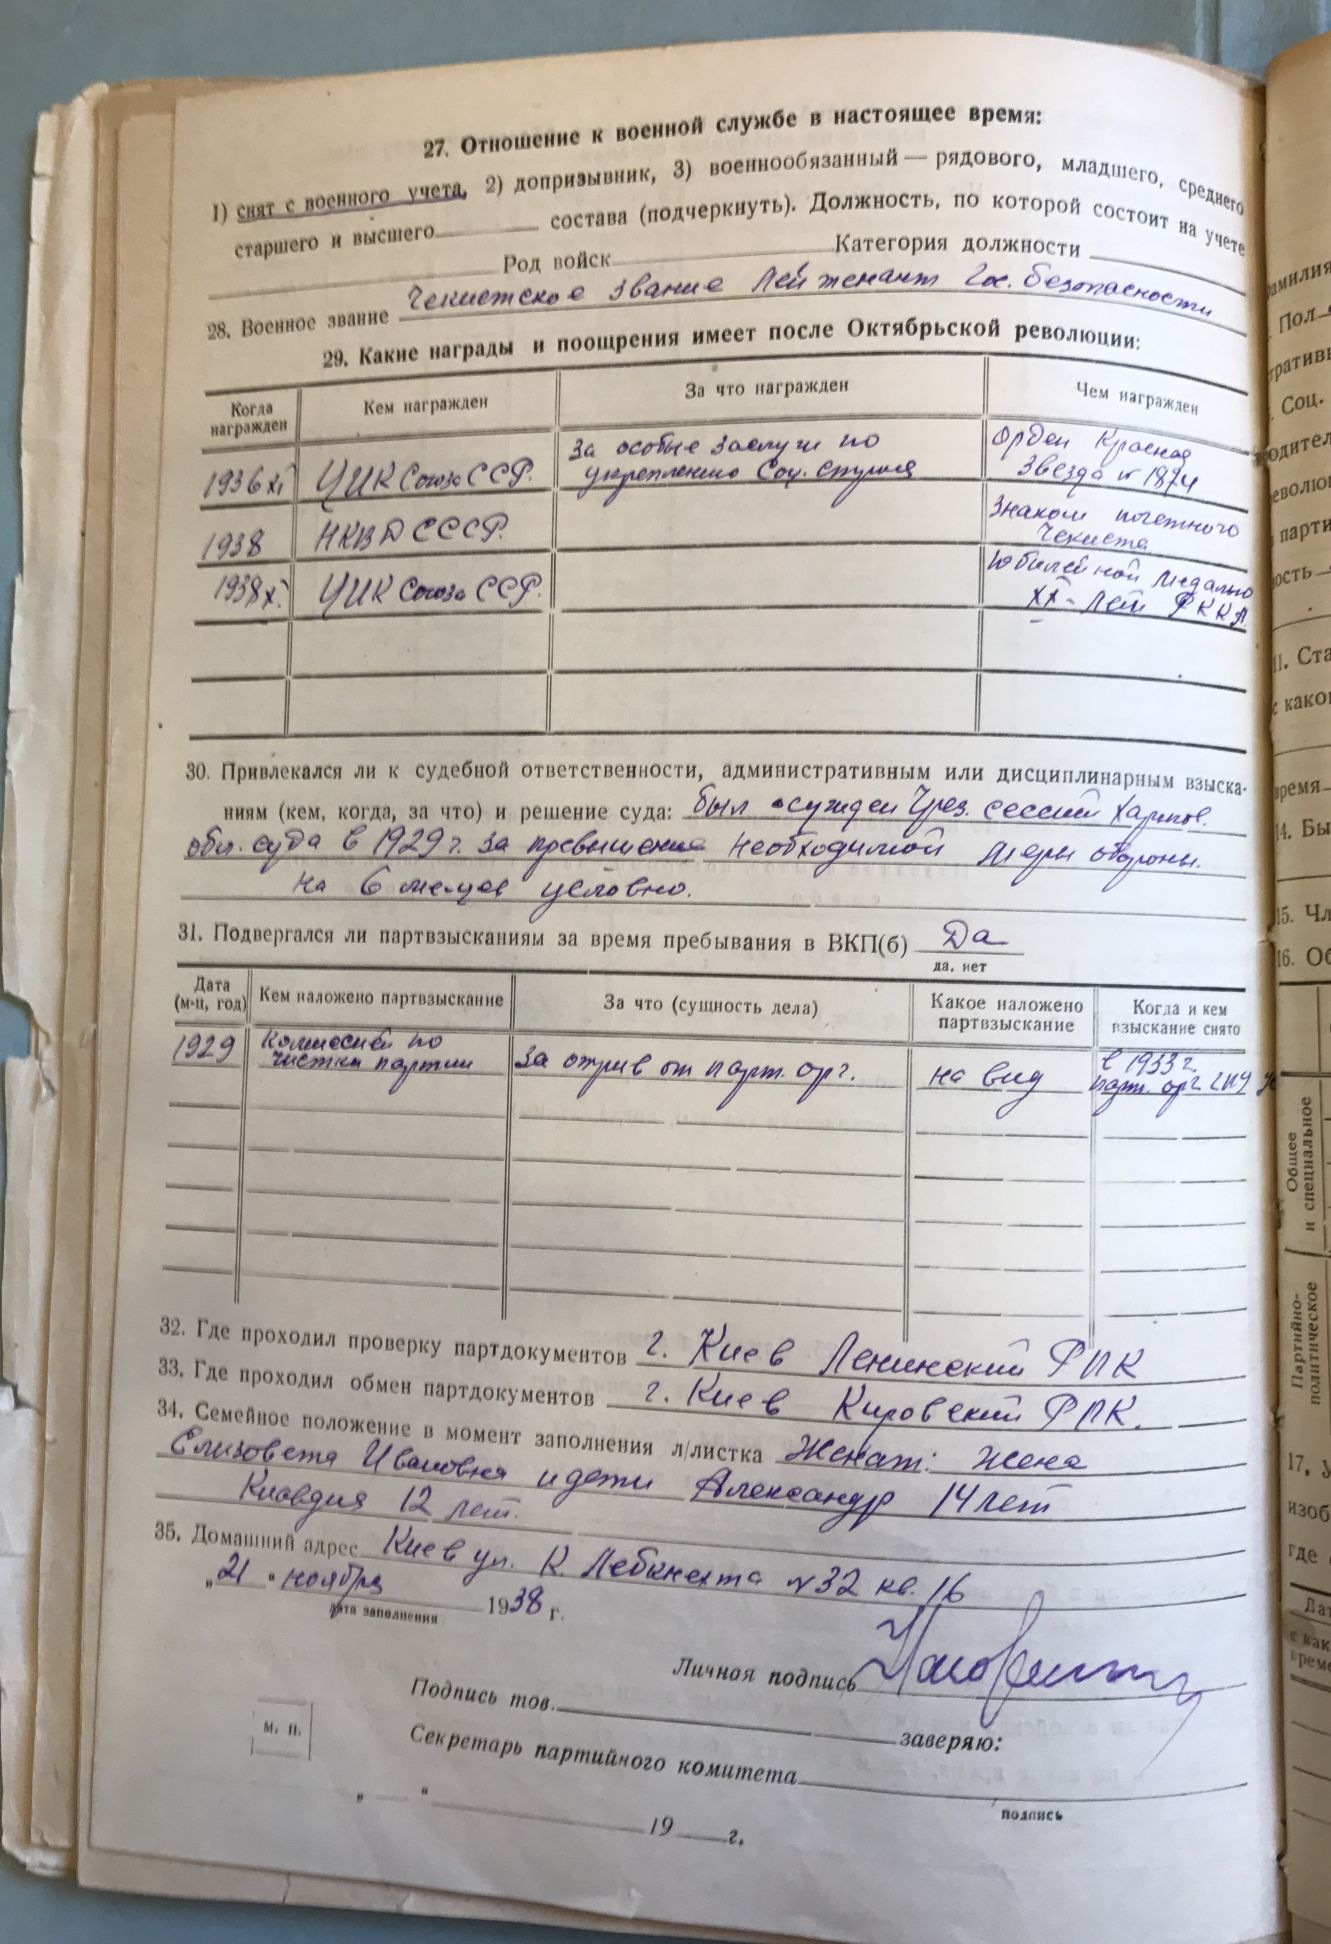 27. Отношение к военной службе в настоящее время:
1) снят с военного учета, 2) допризывник, 3) военнообязанный — рядового, младшего, среднего
старшего и высшего состава (подчеркнуть). Должность, по которой состоит на учете
Род войск Категория должности
28. Военное звание Чекистское звание Лейтенант Гос. безопасности
29. Какие награды и поощрения имеет после Октябрьской революции:
Когда награжден Кем награжден За что награжден Чем награжден
1936 XI ЦИК Союза ССР. За особые заслуги по укреплению Соц. Орден Красная Звезда № 1874
1938 НКВД СССР. Знаком почетного Чекиста
1938 X. ЦИК Союза ССР. Юбилейной медалью XX-лет РККА.
30. Привлекался ли к судебной ответственности, административным или дисциплинарным взыска-
ниям (кем, когда, за что) и решение суда: был осужден Чрез. сессией Харьков.
обл. суда в 1929 г. за превышение необходимой меры обороны.
на 6 м-цев условно.
31. Подвергался ли партвзысканиям за время пребывания в ВКП(б) Да
да, нет
Дата (м-ц, год) Кем наложено партвзыскание За что (сущность дела) Какое наложено партвзыскание Когда и кем взыскание снято
1929 Комиссией по чистки партии За отрыв от парт. орг. на вид в 1933 г. парт. орг. ГПУ
32. Где проходил проверку партдокументов г. Киев Ленинский РПК
33. Где проходил обмен партдокументов г. Киев Кировский РПК.
34. Семейное положение в момент заполнения л/листка Женат: жена
Елизовета Ивановна и дети Александр 14 лет
Клавдия 12 лет.
35. Домашний адрес Киев ул. К. Лебкнехта № 32 кв. 16
„21" ноября 1938 г.
дата заполнения
Личная подпись
Подпись тов. заверяю:
м. п.
Секретарь партийного комитета
подпись
„ " 19 г.
амилия
Пол
Соц.
11. Ста
с како
время
14. Бы
15. Чл
16. Об
Общее
и специальное
Партийно-
политическое
17. У
изоб
где
Дат
с как
време